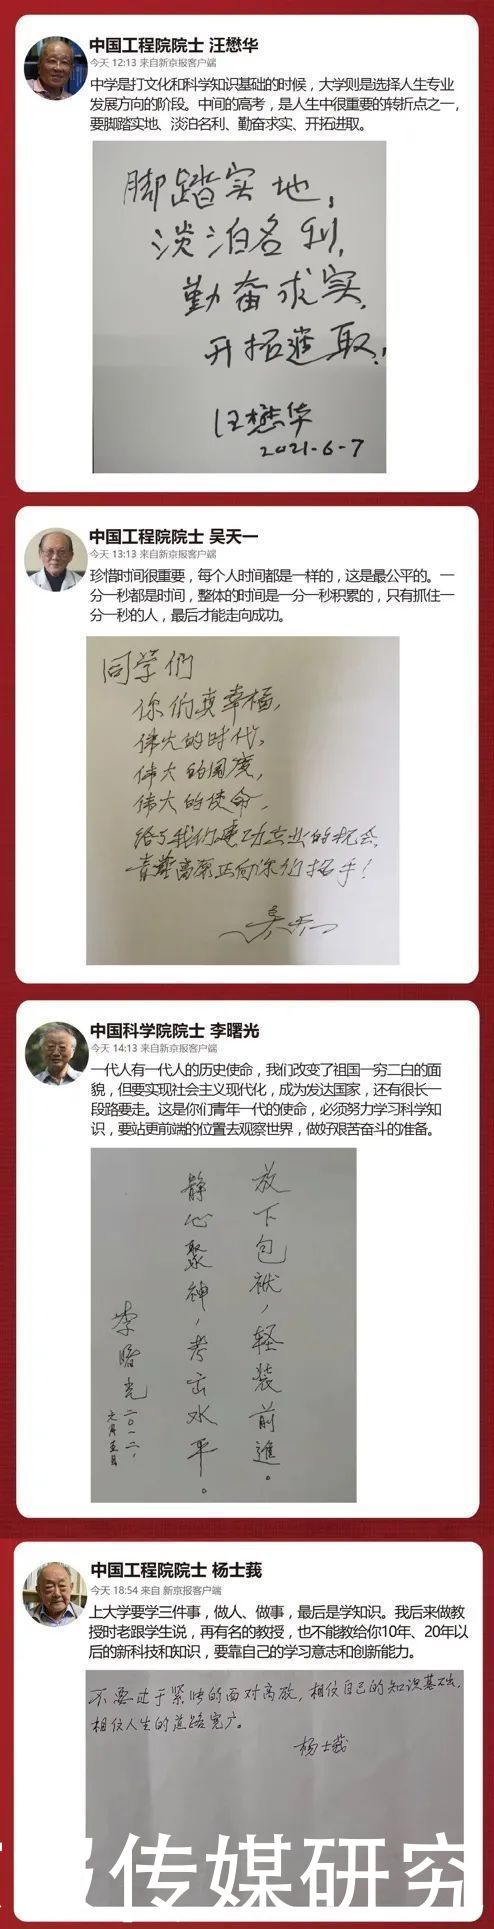 中国工程院院士 汪懋华
今天 12:13 来自新京报客户端
中学是打文化和科学知识基础的时候，大学则是选择人生专业
发展方向的阶段。中间的高考，是人生中很重要的转折点之一，
要脚踏实地、淡泊名利、勤奋求实、开拓进取。
脚踏实地，
淡泊名利，
勤奋求实，
开拓进取！
汪懋华
2021-6-7
中国工程院院士 吴天一
今天 13:13 来自新京报客户端
珍惜时间很重要，每个人时间都是一样的，这是最公平的。一
分一秒都是时间，整体的时间是一分一秒积累的，只有抓住一
分一秒的人，最后才能走向成功。
同学们
你们真幸福，
伟大的时代，
伟大的国度，
伟大的使命，
给了我们建功立业的机会，
青藏高原正向你们招手！
吴天一
中国科学院院士 李曙光
今天 14:13 来自新京报客户端
一代人有一代人的历史使命，我们改变了祖国一穷二白的面
貌，但要实现社会主义现代化，成为发达国家，还有很长一
段路要走。这是你们青年一代的使命，必须努力学习科学知
识，要站更前端的位置去观察世界，做好艰苦奋斗的准备。
放下包袱，轻装前進。
静心聚神，考出水平。
李曙光
二〇二一、
六月五日
中国工程院院士 杨士莪
今天 18:54 来自 新京报客户端
上大学要学三件事，做人、做事，最后是学知识。我后来做教
授时老跟学生说，再有名的教授，也不能教给你10年、20年以
后的新科技和知识，要靠自己的学习意志和创新能力。
不要过于紧张的面对高放，相信自己的知识基础，
相信人生的道路宽广。
杨士莪
报传媒研究